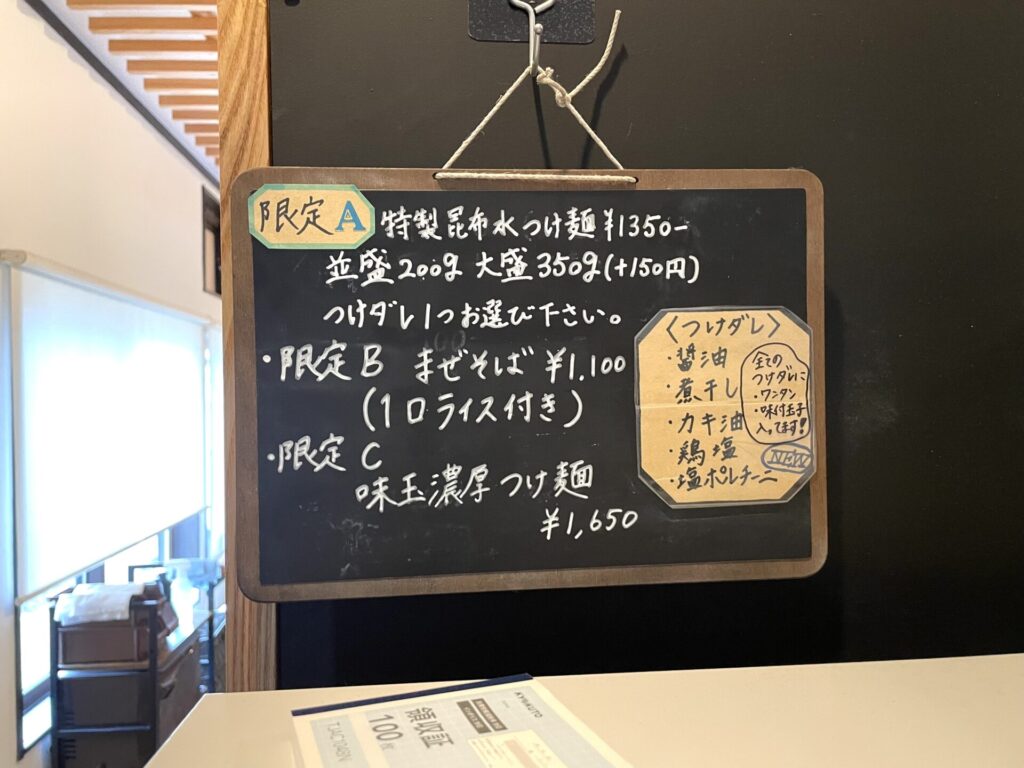 限定A 特製昆布水つけ麺 ¥1350-
並盛200g 大盛350g(+150円)
つけダレ1つお選び下さい。
・限定B まぜそば ¥1,100
(1口ライス付き)
・限定C
味玉濃厚つけ麺
¥1,650
〈つけダレ〉
・醤油
・煮干し
・カキ油
・鶏塩
・塩ポルチーニ
全ての
つけダレに
・ワンタン
・味付玉子
入ってます!
NEW
領収証
100枚